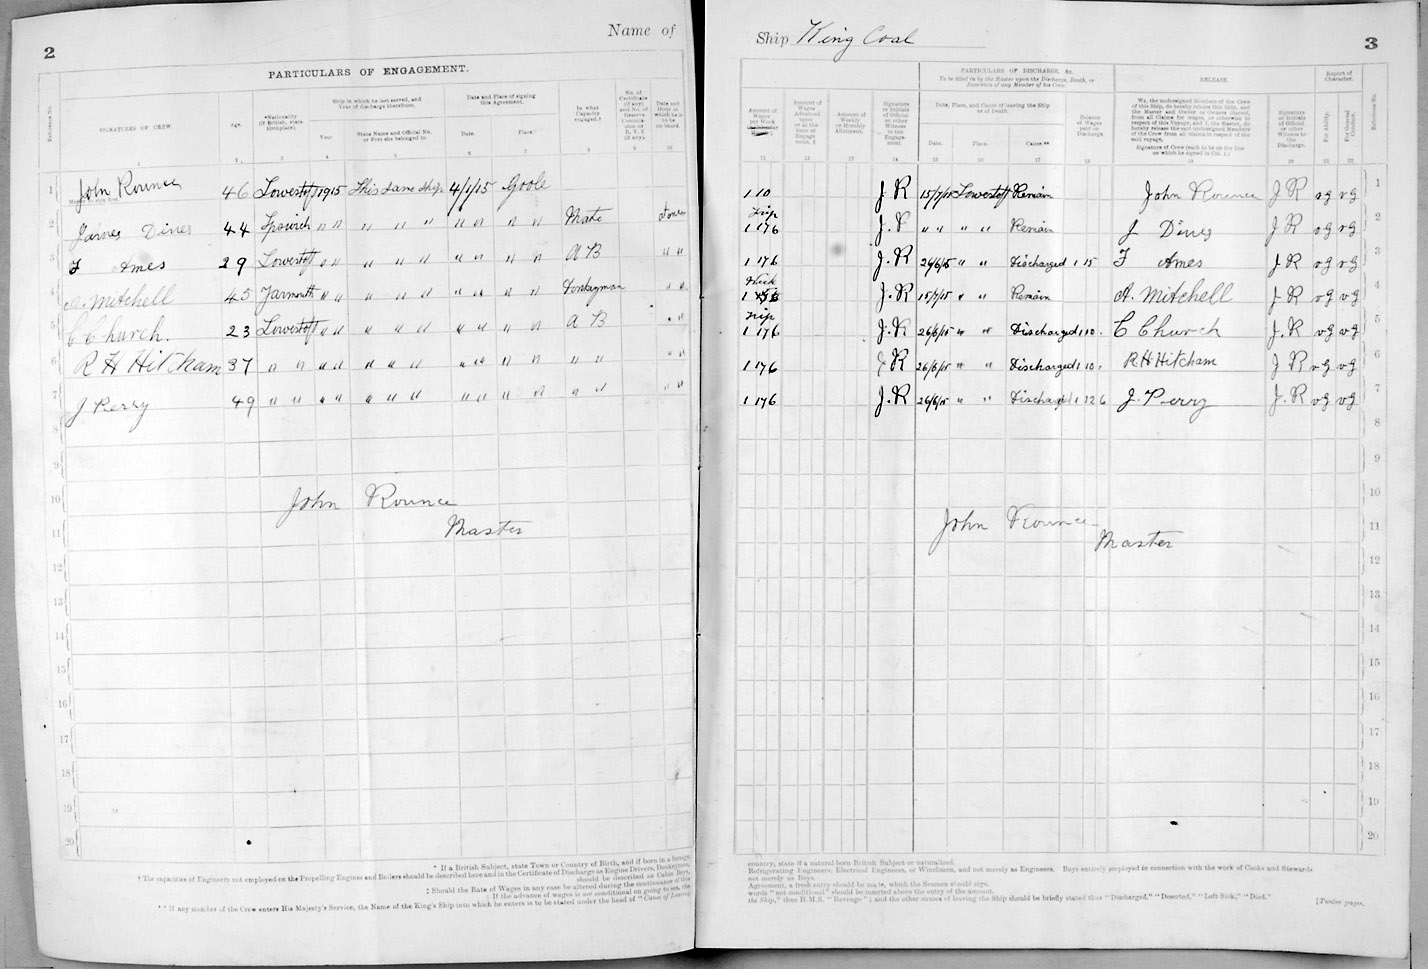 2
Name of
PARTICULARS OF ENGAGEMENT.
Reference No.
SIGNATURES OF CREW.
Age.
*Nationality (If British, state birthplace).
Ship in which he last served, and Year of discharge therefrom.
Year.
State Name and Official No. or Port she belonged to.
Date and Place of signing this Agreement.
Date.
Place.
In what Capacity engaged.†
No. of Certificate (if any)
Date and Hour at which he is to be on board.
1 John Rounce 46 Lowestoft 1915 This same ship 4/1/15 Goole
2 James Dines 44 Ipswich " " " " " " " " " Mate at once
3 F Ames 29 Lowestoft " " " " " " " " " A B " "
4 A. Mitchell 45 Yarmouth " " " " " " " " " Donkeyman " "
5 C Church. 23 Lowestoft " " " " " " " " " A B " "
6 R H Hitcham 37 " " " " " " " " " " " " " " "
7 J Perry 49 " " " " " " " " " " " " " " "
8
9
10
John Rounce
11
Master
12
13
14
15
16
17
18
19
20
* If a British Subject, state Town or Country of Birth, and if born in a foreign
† The capacities of Engineers not employed on the Propelling Engines and Boilers should be described here and in the Certificate of Discharge as Engine Drivers, Donkeymen,
should be described as Cabin Boys,
‡ Should the Rate of Wages in any case be altered during the continuance of this
‖ If the advance of wages is not conditional on going to sea, the
** If any member of the Crew enters His Majesty's Service, the Name of the King's Ship into which he enters is to be stated under the head of "Cause of leaving
Ship King Coal
3
PARTICULARS OF DISCHARGE, &c.
To be filled in by the Master upon the Discharge, Death, or Desertion of any Member of his Crew.
RELEASE.
Report of Character.
Amount of Wages per Week
Amount of Wages Advanced upon or at the time of Engagement. ‖
Amount of Weekly or Monthly Allotment.
Signature or Initials of Official or other Witness to the Engagement
Date, Place, and Cause of leaving the Ship or of Death.
Date.
Place.
Cause.**
Balance of Wages paid on Discharge.
We, the undersigned Members of the Crew of this Ship, do hereby release this Ship, and the Master and Owner or Owners thereof, from all Claims for wages, or otherwise in respect of this Voyage, and I, the Master, do hereby release the said undersigned Members of the Crew from all claims in respect of the said voyage.
Signature of Crew (each to be on the line on which he signed in Col. 1.)
Signature or Initials of Official or other Witness to the Discharge.
For Ability.
For General Conduct.
Reference No.
1 10 J R 15/7/15 Lowestoft Remain John Rounce J R vg vg 1
Trip
1 17 6 J. R " " " " Remain J Dines J R vg vg 2
1 17 6 J. R 26/6/15 " " Discharged 1 15 F Ames J R vg vg 3
Week
1 J. R 15/7/15 " " Remain A. Mitchell J R vg vg 4
Trip
1 17 6 J. R 26/6/15 " " Discharged 1 10 . C Church J. R vg vg 5
1 17 6 J R 26/6/15 " " Discharged 1 10 . R H Hitcham J R vg vg 6
1 17 6 J. R 26/6/15 " " Discharged 1 12 6 J. Perry J. R vg vg 7
8
9
10
John Rounce
11
Master
12
13
14
15
16
17
18
19
20
country, state if a natural born British Subject or naturalised.
Refrigerating Engineers, Electrical Engineers, or Winchmen, and not merely as Engineers. Boys entirely employed in connection with the work of Cooks and Stewards
not merely as Boys.
Agreement, a fresh entry should be made, which the Seamen should sign.
words "not conditional" should be inserted above the entry of the amount.
the Ship," thus H.M.S. "Revenge"; and the other causes of leaving the Ship should be briefly stated thus "Discharged," "Deserted," "Left Sick," "Died."
[Twelve pages.